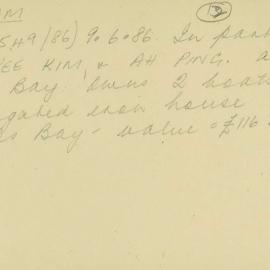 IM
549 (86) 9.6.86. In part
EE KIM, & AH PING. a
Bay. Owns 2 boats
gated iron house
s Bay - value = £116